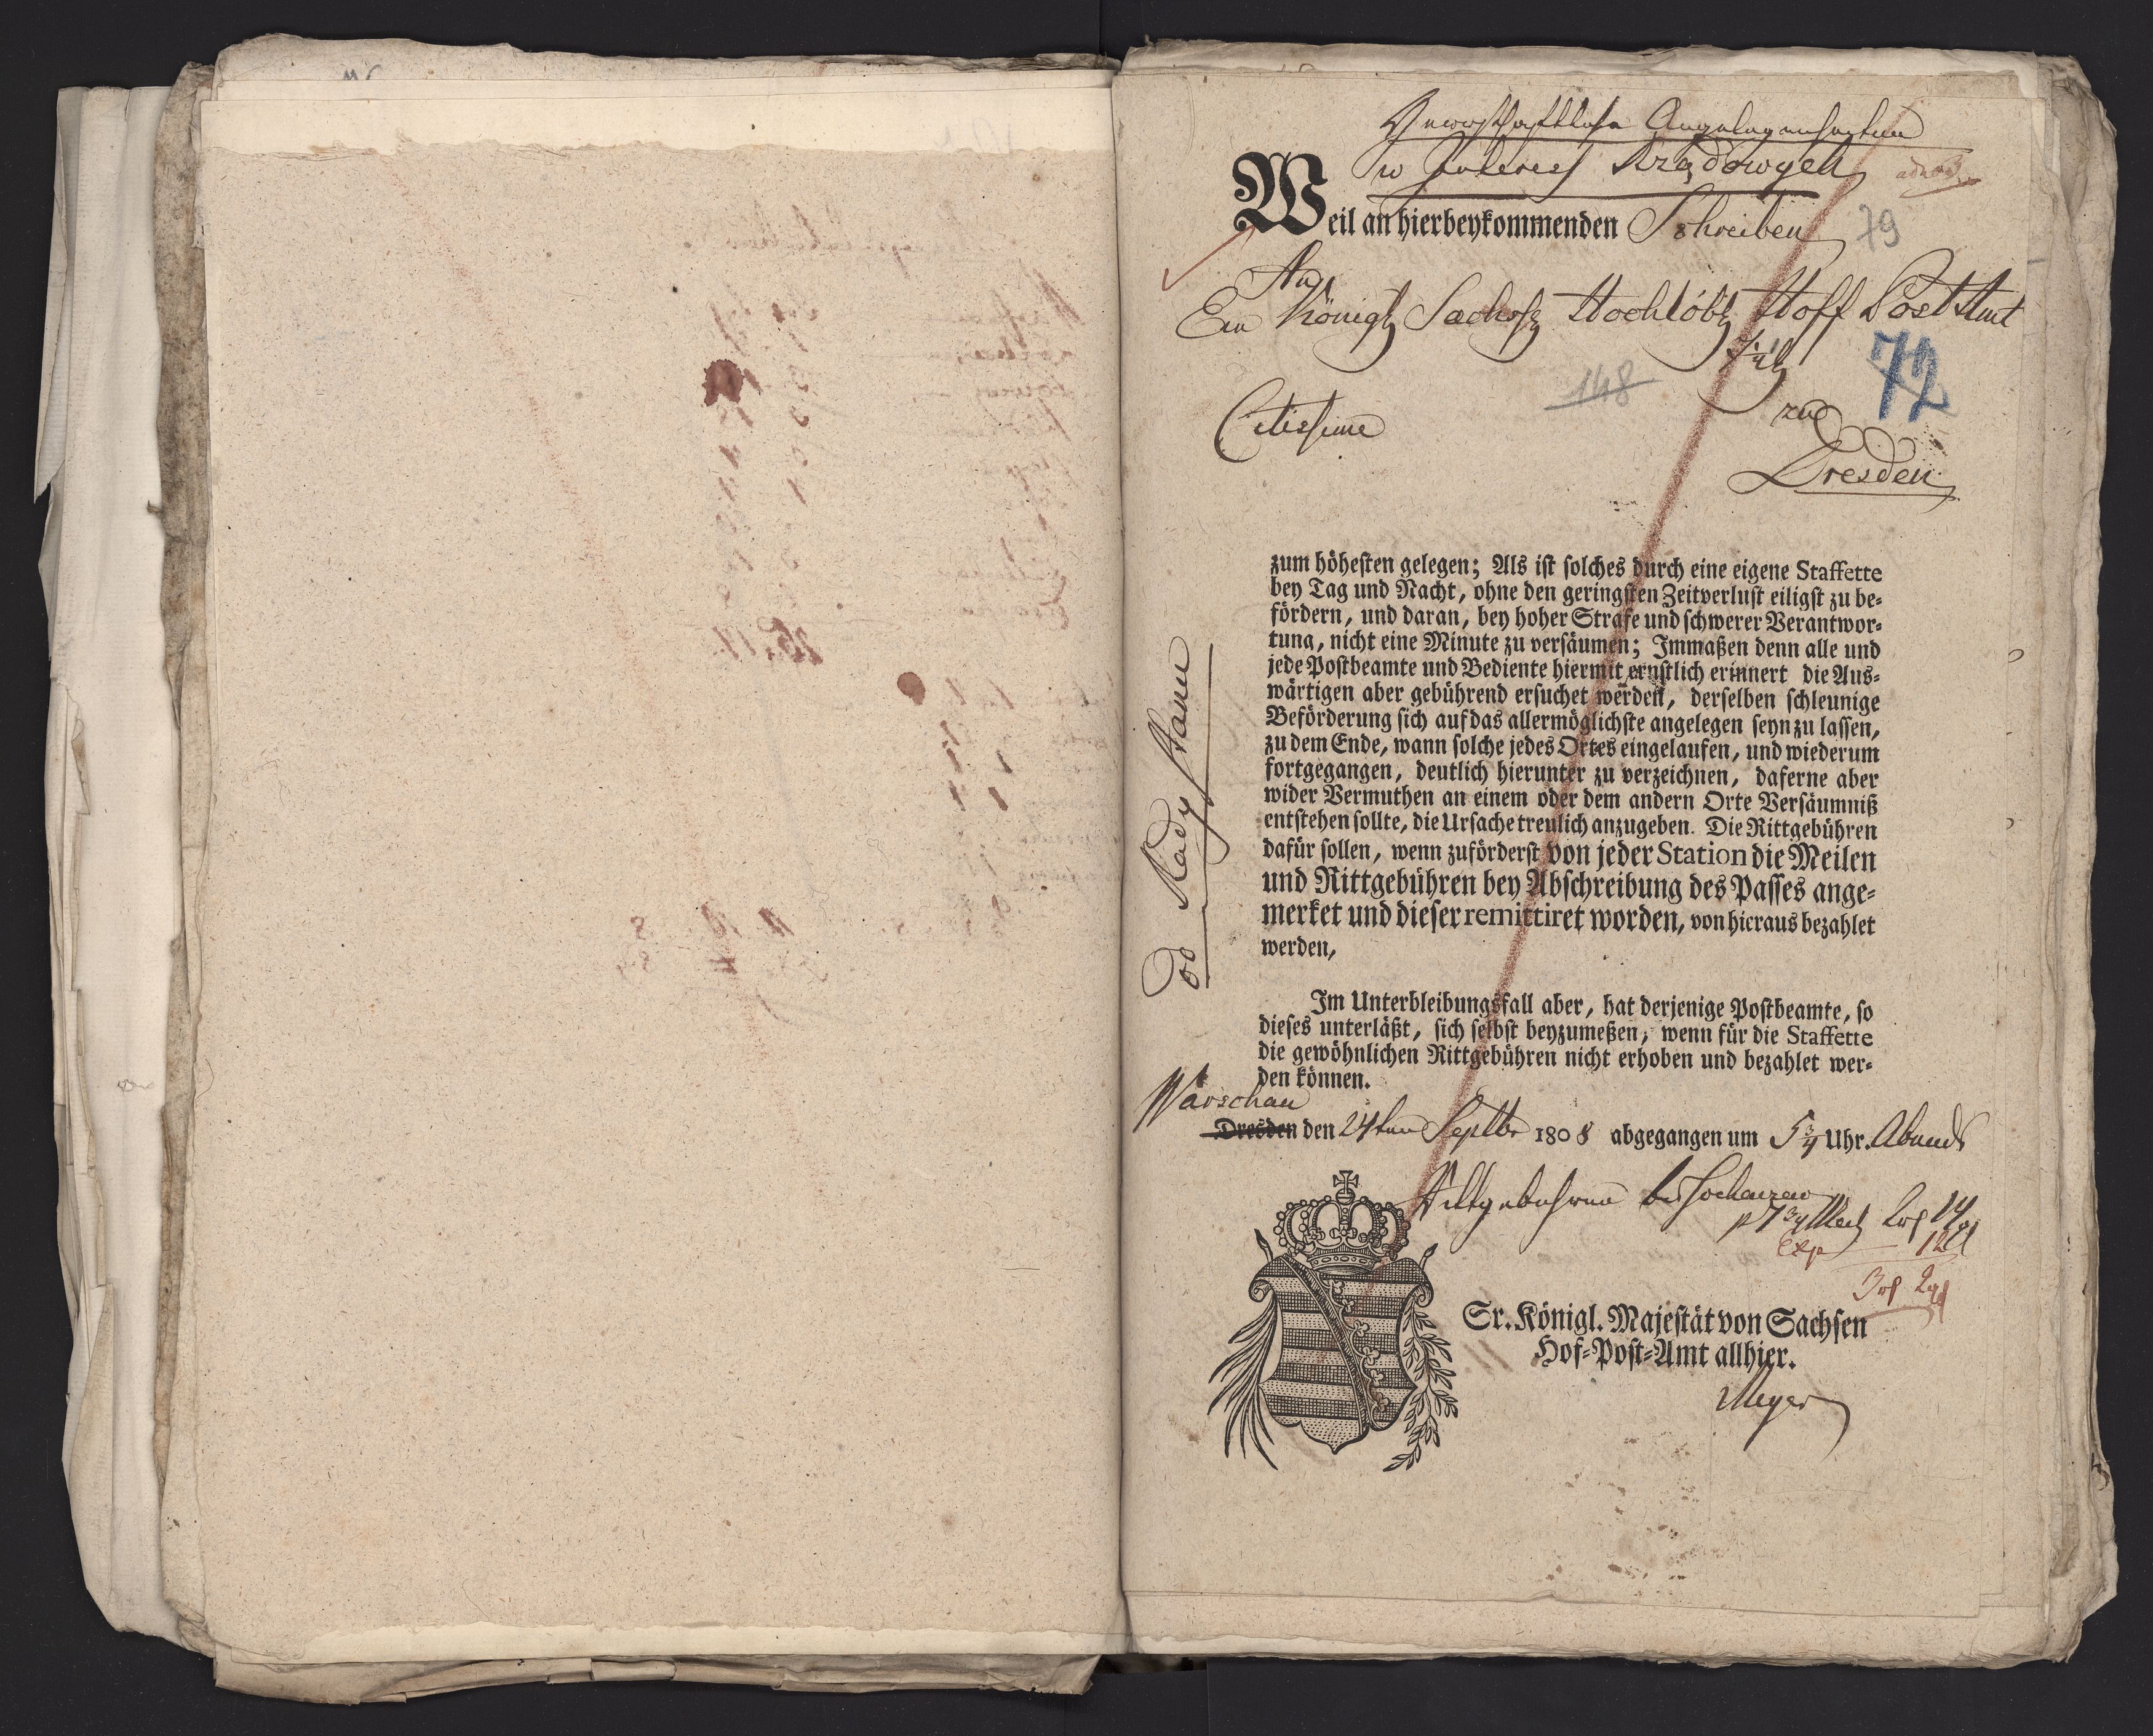 Herrschaftliche Angelegenheiten
w Interess Rządowych
79
Weil an hierbeykommenden Schreiben
An
Ein Königl Sächß Hochlöbl Hoff Post Amt
72
148
zu
Citissime
Dresden
Od Rady Stanu
zum höhesten gelegen; Als ist solches durch eine eigene Staffette
bey Tag und Nacht, ohne den geringsten Zeitverlust eiligst zu be-
fördern, und daran, bey hoher Strafe und schwerer Verantwor-
tung, nicht eine Minute zu versäumen; Immaßen denn alle und
jede Postbeamte und Bediente hiermit ernstlich erinnert die Aus-
wärtigen aber gebührend ersuchet werden, derselben schleunige
Beförderung sich auf das allermöglichste angelegen seyn zu lassen,
zu dem Ende, wann solche jedes Ortes eingelaufen, und wiederum
fortgegangen, deutlich hierunter zu verzeichnen, daferne aber
wider Vermuthen an einem oder dem andern Orte Versäumniß
entstehen sollte, die Ursache treulich anzugeben. Die Rittgebühren
dafür sollen, wenn zuförderst von jeder Station die Meilen
und Rittgebühren bey Abschreibung des Passes ange-
merket und dieser remittiret worden, von hieraus bezahlet
werden,
Im Unterbleibungsfall aber, hat derjenige Postbeamte, so
dieses unterläßt, sich selbst beyzumeßen, wenn für die Staffette
die gewöhnlichen Rittgebühren nicht erhoben und bezahlet wer-
den können.
Warschau
Dresden den 24ten Septbr 1808 abgegangen um 5 3/4 Uhr. Abends
Rittgebühren bis Sochaczew
p 7 3/4 Meil 2 rt 14 gl
Exp 12 gl
3 rt 2 gl
Sr. Königl. Majestät von Sachsen
Hof-Post-Amt allhier.
Meyer